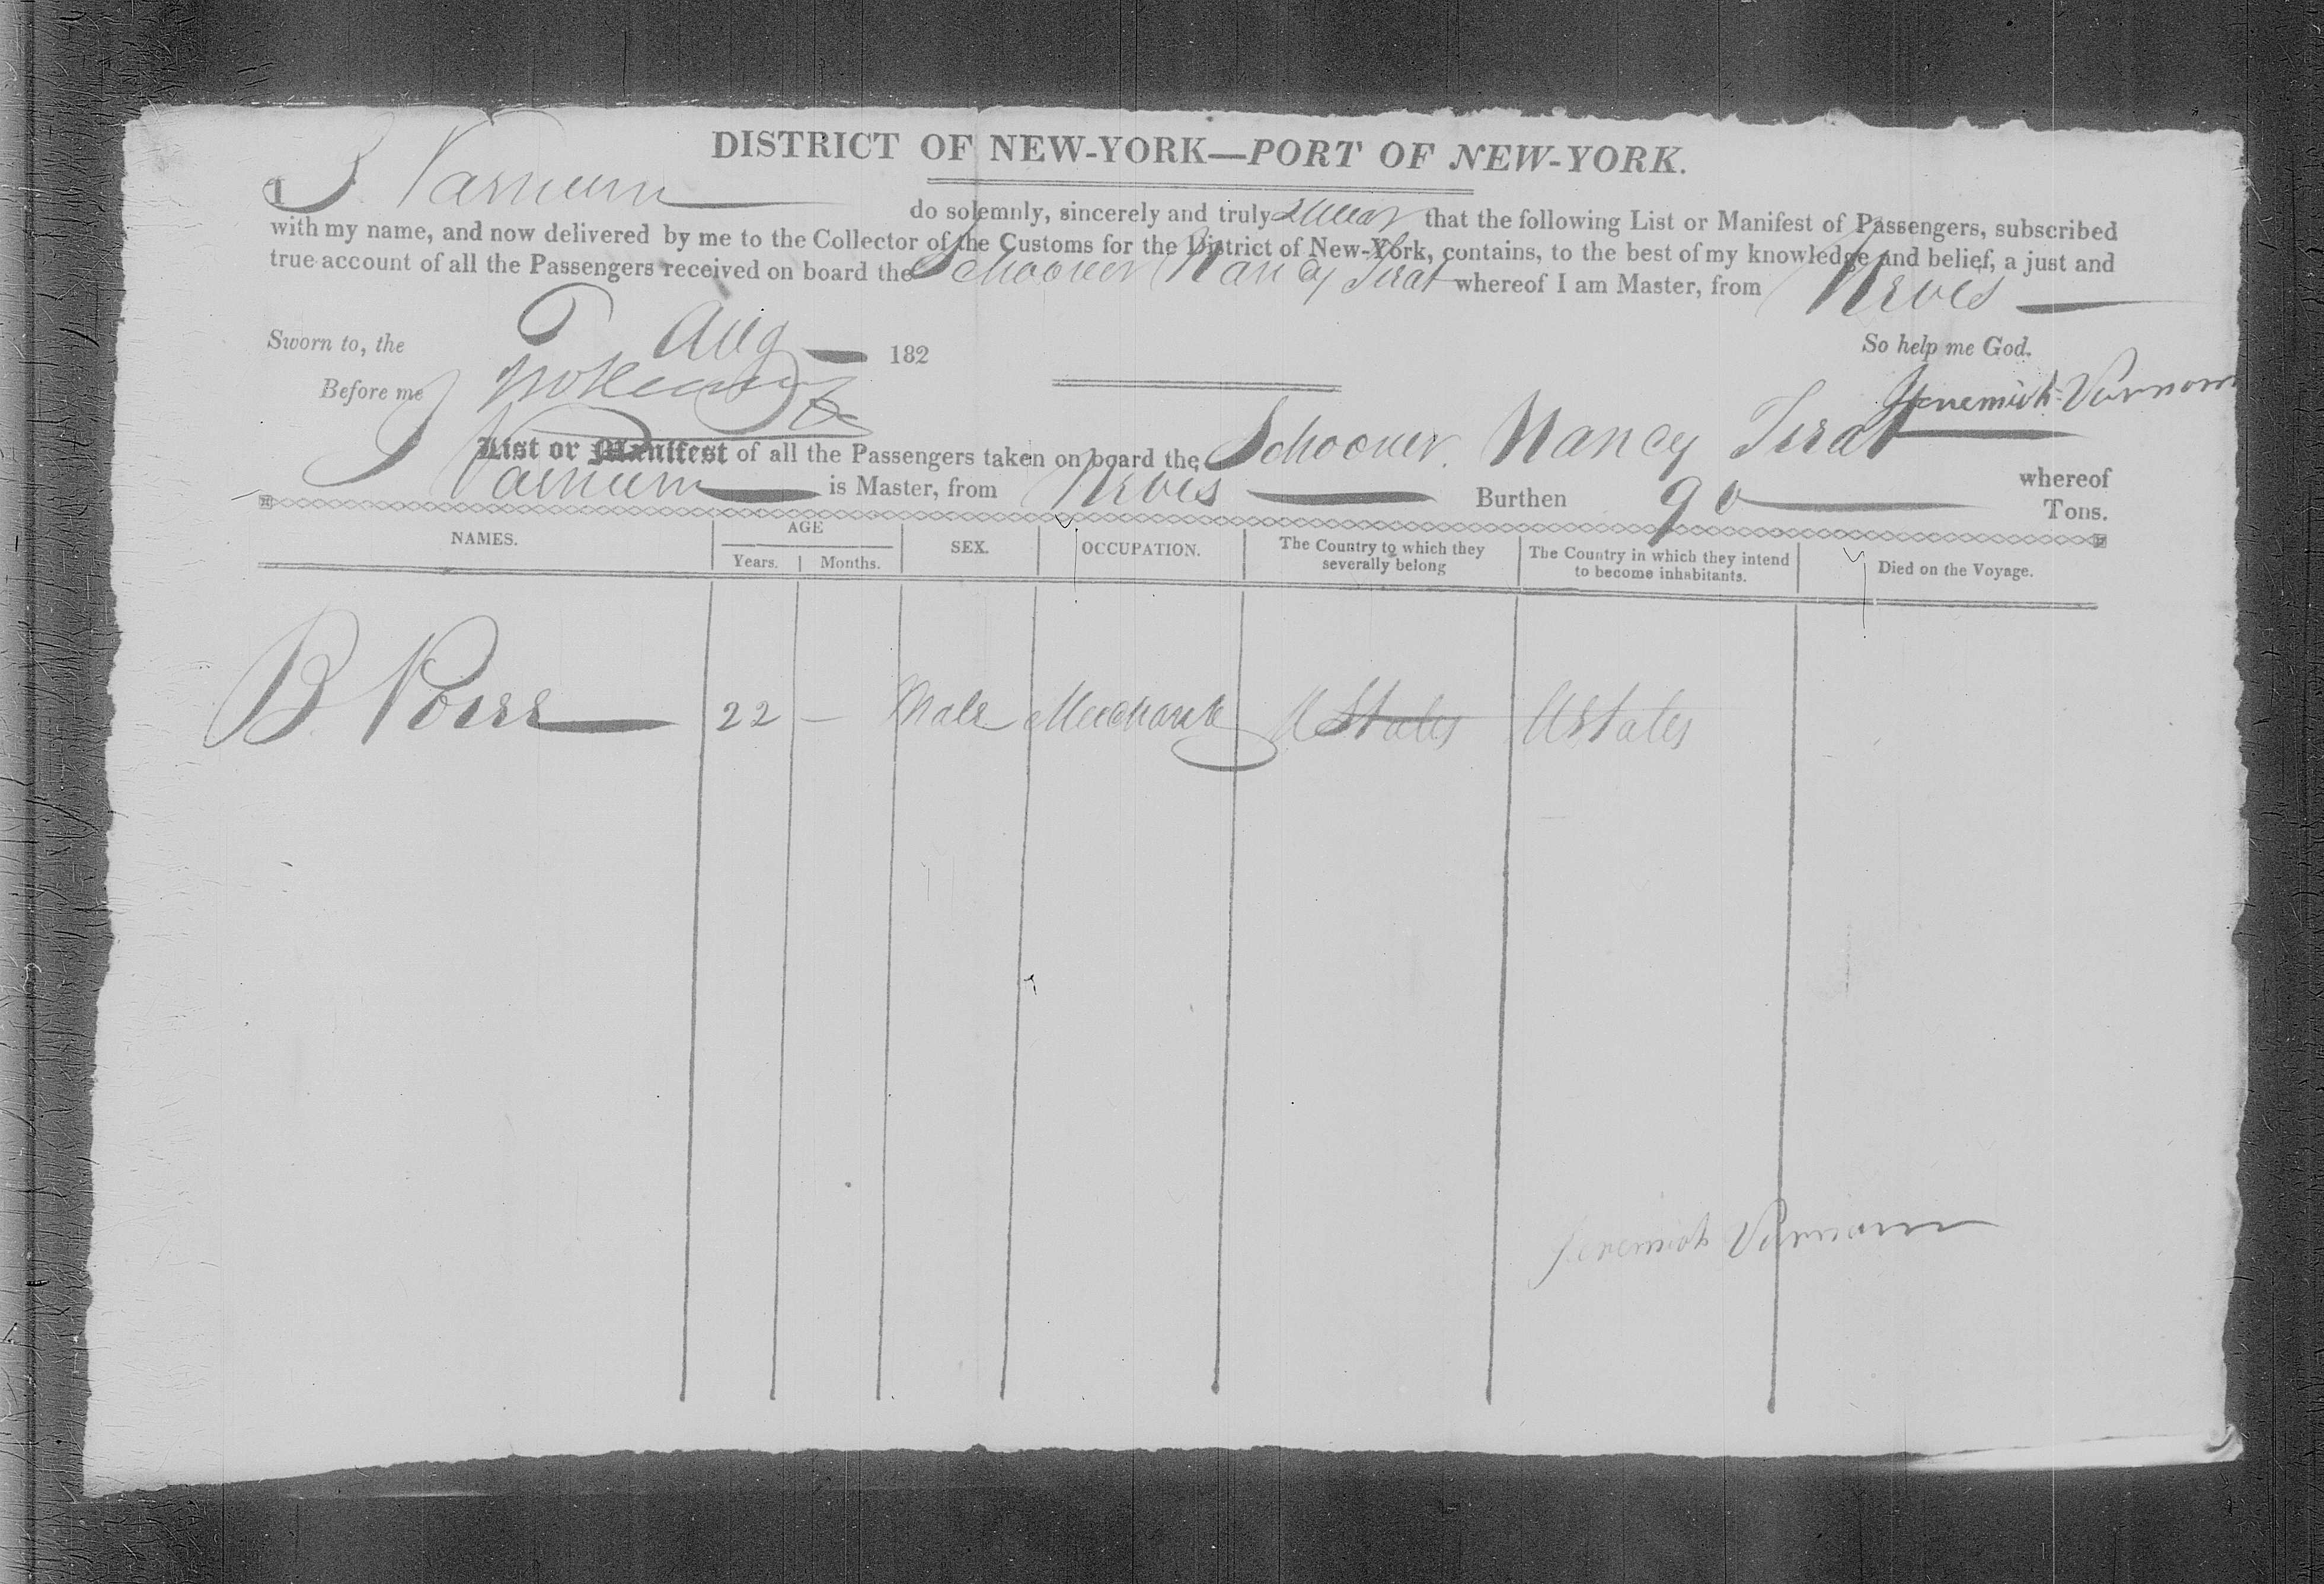 DISTRICT OF NEW-YORK—PORT OF NEW-YORK.
I J. Varnum do solemnly, sincerely and truly swear that the following List or Manifest of Passengers, subscribed
with my name, and now delivered by me to the Collector of the Customs for the District of New-York, contains, to the best of my knowledge and belief, a just and
true account of all the Passengers received on board the Schooner Nancy whereof I am Master, from Nevis
Sworn to, the Aug 182
So help me God.
Before me
Jeremiah Varnom
List or Manifest of all the Passengers taken on board the Schooner Nancy whereof
J Varnum is Master, from Nevis Burthen 90 Tons.
NAMES. AGE SEX. OCCUPATION. The Country to which they severally belong The Country in which they intend to become inhabitants. Died on the Voyage.
Years. Months.
B 22 — Male Merchant U States U States
Jeremiah Varnom